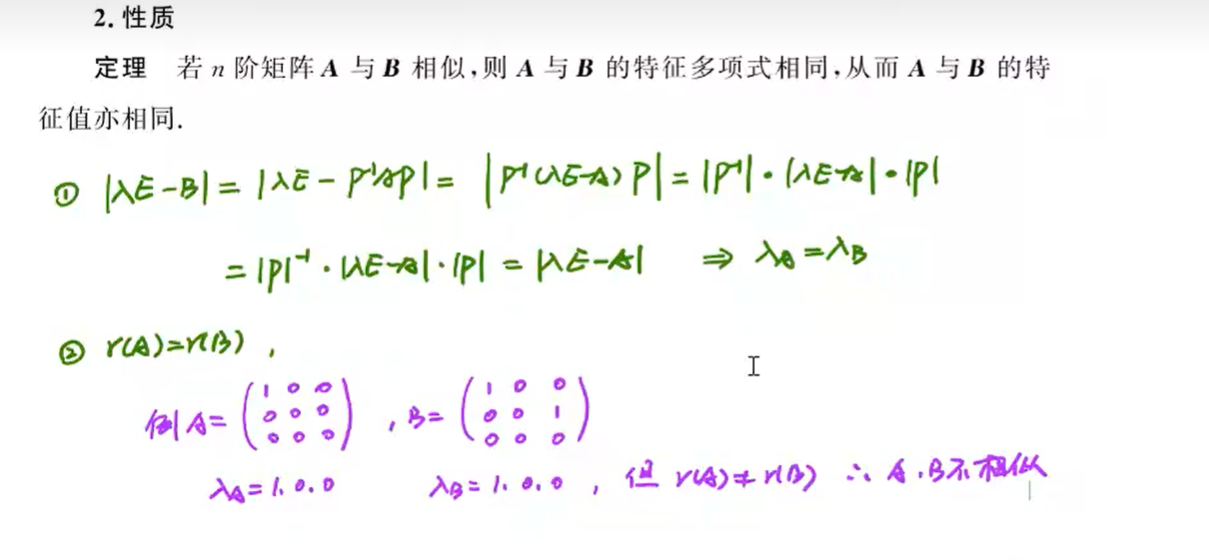 2. 性质
定理 若 n 阶矩阵 A 与 B 相似,则 A 与 B 的特征多项式相同,从而 A 与 B 的特
征值亦相同.
① |λE-B| = |λE - P⁻¹AP| = |P⁻¹(λE-A)P| = |P⁻¹|·|λE-A|·|P|
= |P|⁻¹·|λE-A|·|P| = |λE-A| ⇒ λA = λB
② r(A)=r(B) ,
例 A= (1 0 0 / 0 0 0 / 0 0 0) , B= (1 0 0 / 0 0 1 / 0 0 0)
λA = 1. 0. 0 λB = 1. 0. 0 , 但 r(A)≠r(B) ∴ A.B不相似